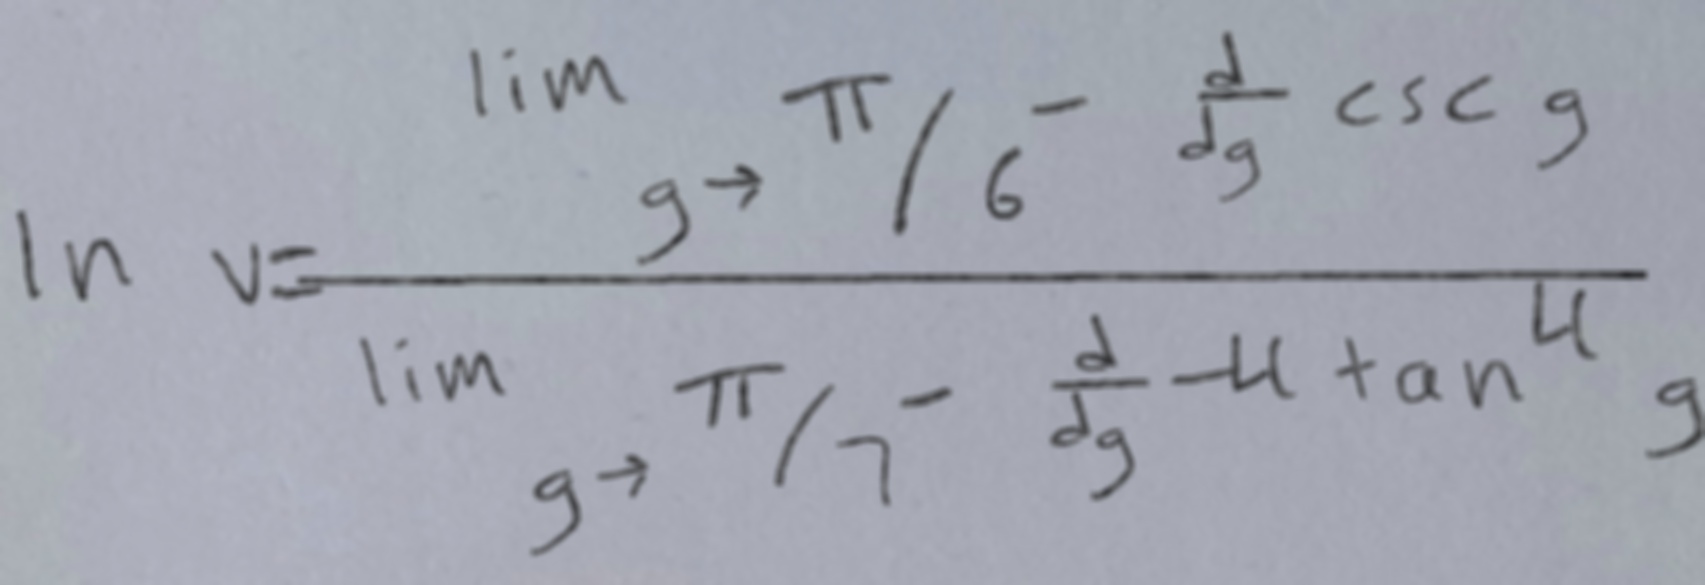 ln v = \frac{\lim_{g \to \pi/6^-} \frac{d}{dg} \csc g}{\lim_{g \to \pi/7^-} \frac{d}{dg} -4 \tan^4 g}